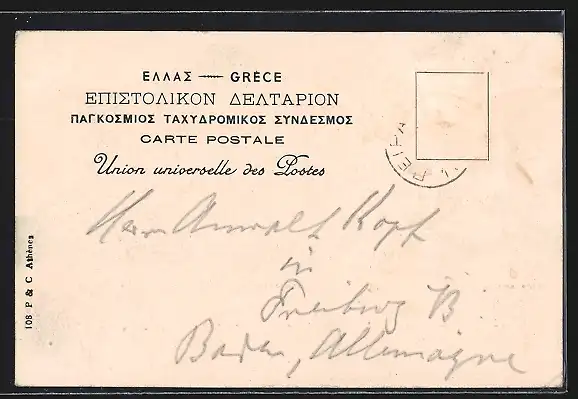 ΕΛΛΑΣ — GRÈCE
ΕΠΙΣΤΟΛΙΚΟΝ ΔΕΛΤΑΡΙΟΝ
ΠΑΓΚΟΣΜΙΟΣ ΤΑΧΥΔΡΟΜΙΚΟΣ ΣΥΝΔΕΣΜΟΣ
CARTE POSTALE
Union universelle des Postes
ΠΕΙΡΑ
Herrn Anwalt Kopf
in
Freiburg i/B
Baden, Allemagne
108 P & C Athènes